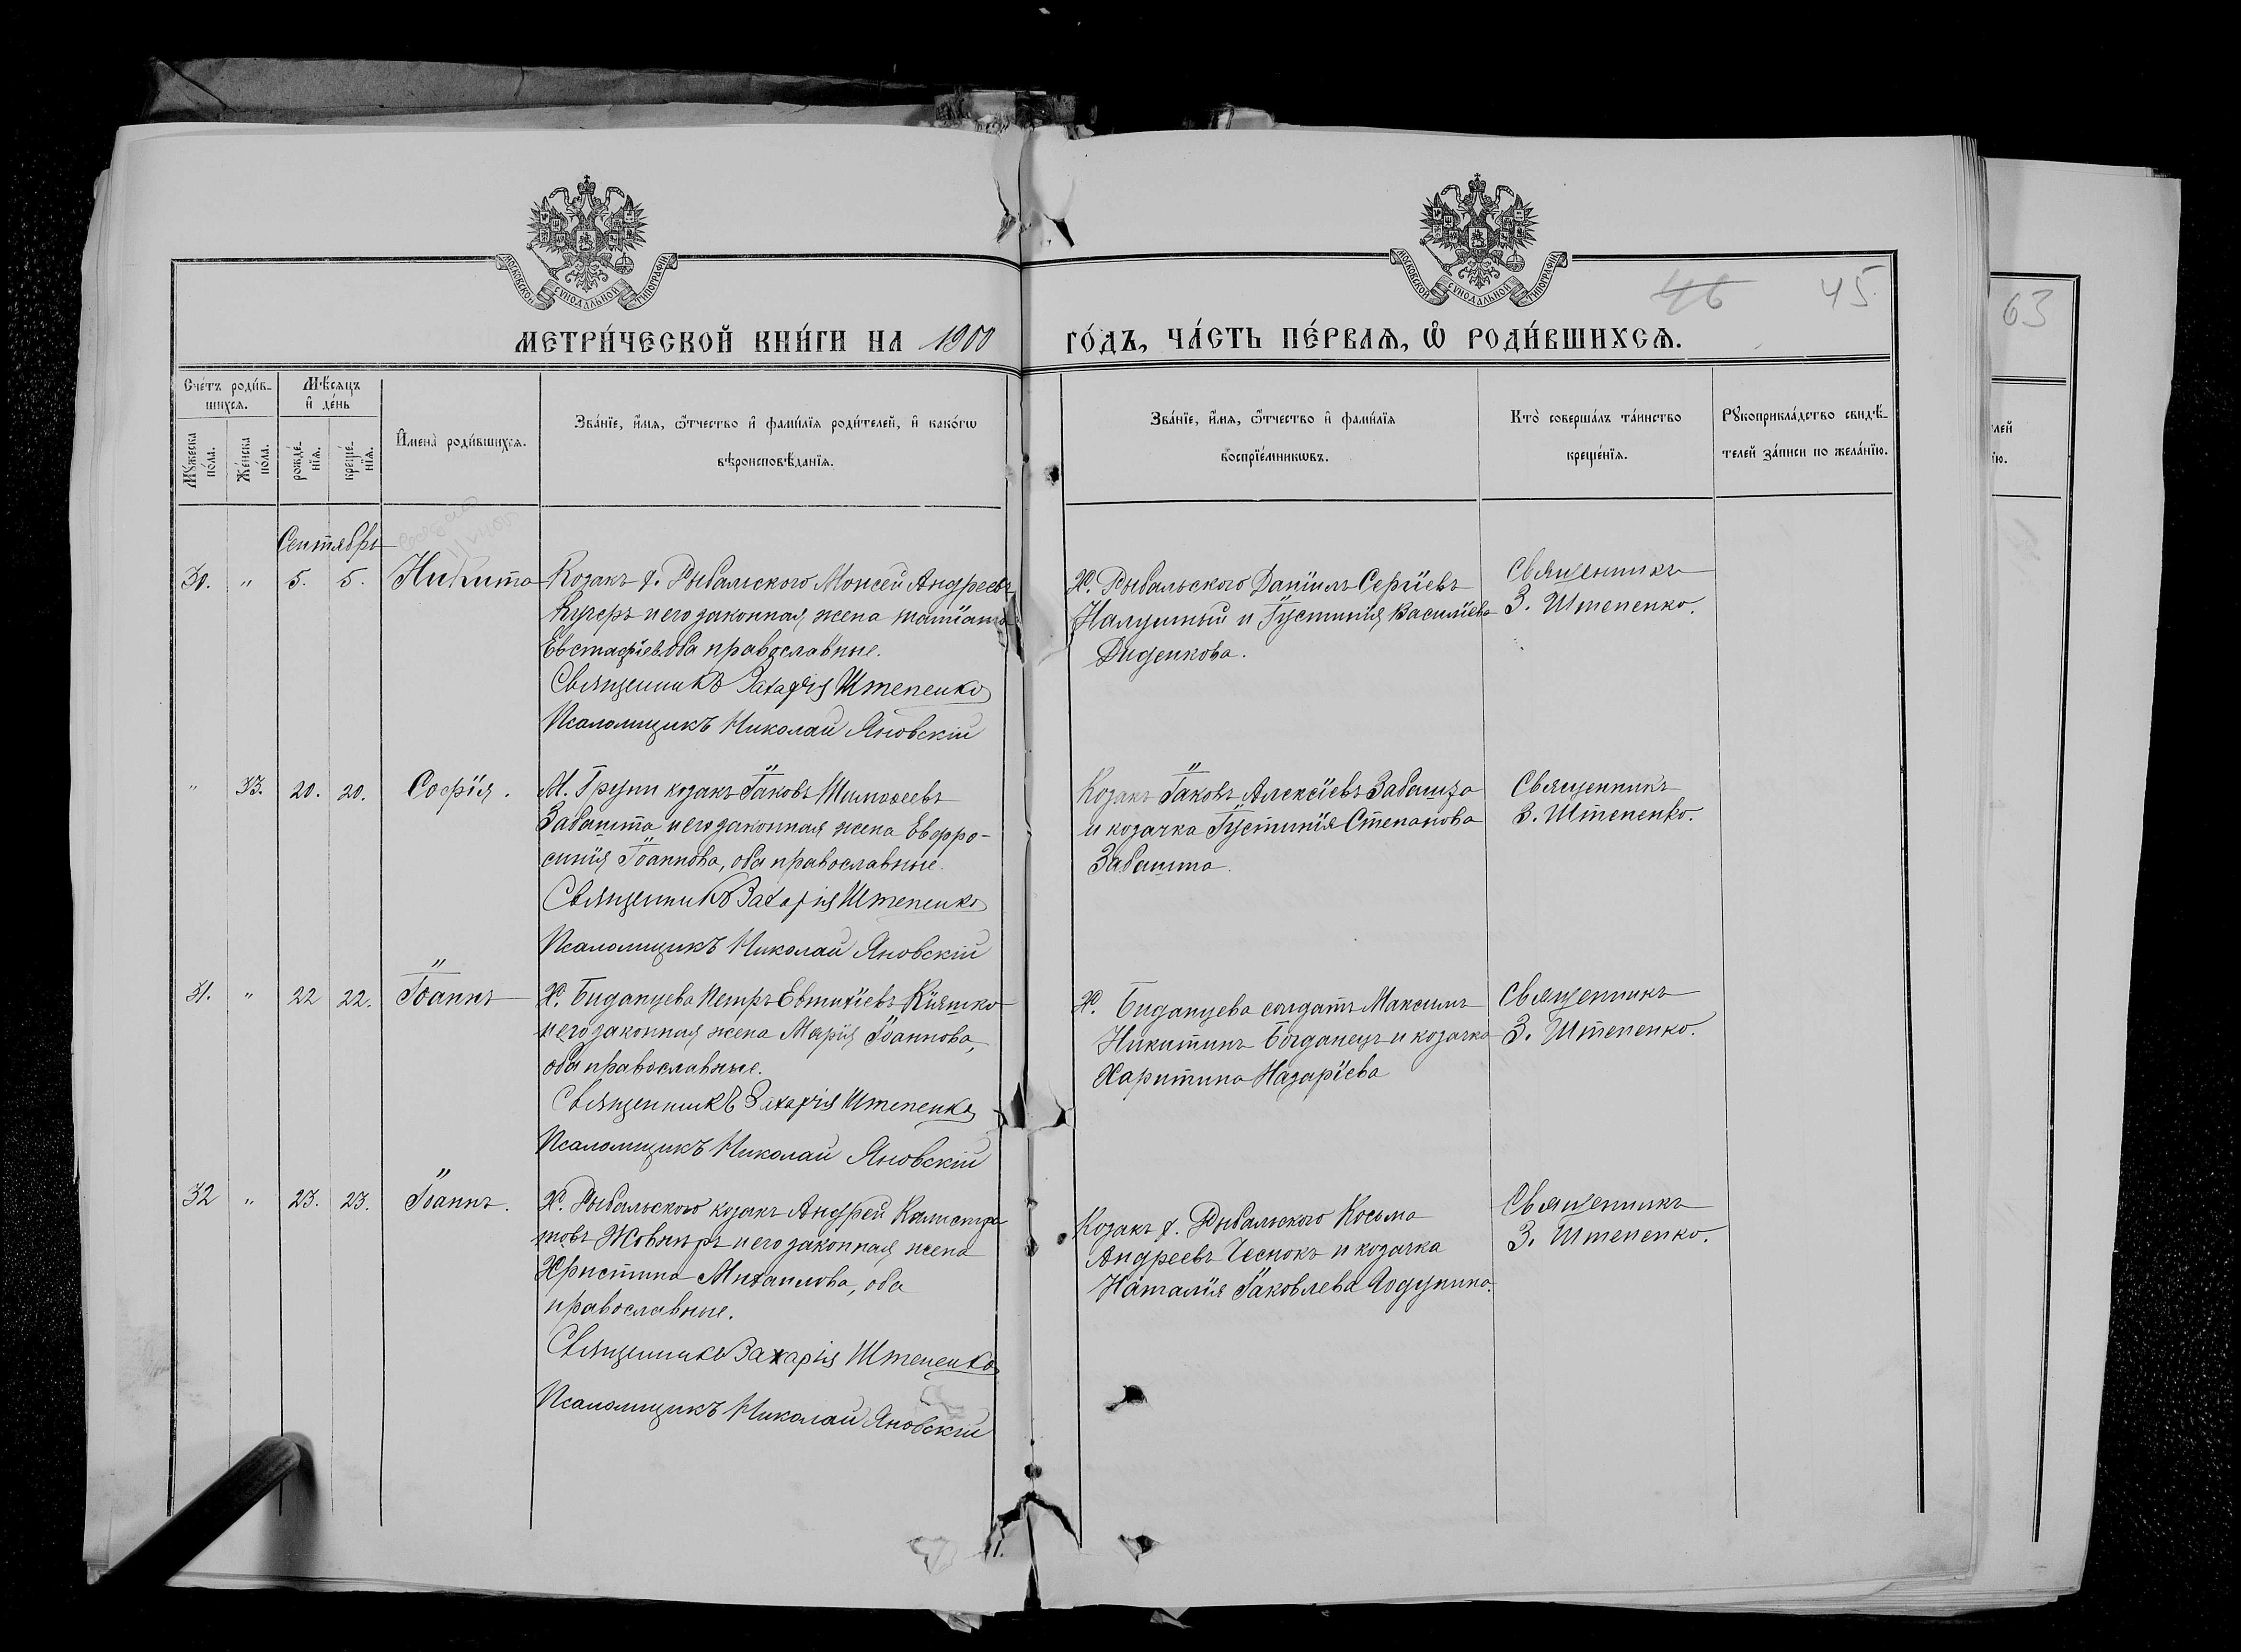 МОСКОВСКОЙ СѴНОДАЛЬНОЙ ТИПОГРАФІИ
МОСКОВСКОЙ СѴНОДАЛЬНОЙ ТИПОГРАФІИ
46 45
63
МЕТРИ́ЧЕСКОЙ КНИ́ГИ НА 1900 ГО́ДЪ, ЧА́СТЬ ПЕ́РВАѦ, Ѡ҆ РОДИ́ВШИХСѦ.
Сче́тъ роди́в-
шихсѧ.
Мѣ́сяцъ
и҆ де́нь
Мꙋжеска
по́ла.
Же́нска
по́ла.
рожде́-
нїѧ.
креще́-
нїѧ.
И҆мена̀ роди́вшихсѧ.
Зва́нїе, и҆́мѧ, ѻ҆́тчество и҆ фами́лїѧ роди́телей, и҆ како́гѡ
вѣроисповѣ́данїѧ.
Зва́нїе, и҆́мѧ, ѻ҆́тчество и҆ фами́лїѧ
воспрїе́мникѡвъ.
Кто̀ соверша́лъ та́инство
креще́нїѧ.
Рꙋкоприкла́дство свидѣ́-
телей за́писи по жела́нїю.
Сентябрь
30. " 5. 5. Никита
Козакъ х. Рыбальского Моисей Андреевъ
Кучеръ и его законная жена Татіана
Евстафіева оба православные.
Священникъ Захарія Штепенко
Псаломщикъ Николай Яновскій
Х. Рыбальского Даніилъ Сергіевъ
и Іустинія Василіева
Диденкова.
Священникъ
З. Штепенко.
" 33. 20. 20. Софія.
М. Груни козакъ Іаковъ Тимофеевъ
Забашта и его законная жена Евфро-
синія Іоаннова, оба православные.
Священникъ Захарія Штепенко
Псаломщикъ Николай Яновскій
Козакъ Іаковъ Алексіевъ Забашта
и козачка Іустинія Степанова
Забашта.
Священникъ
З. Штепенко.
31. " 22 22. Іоаннъ
Х. Биданцева Петръ Евтихіевъ Кіяшко
и его законная жена Марія Іоаннова,
оба православные.
Священникъ Захарія Штепенко
Псаломщикъ Николай Яновскій
Х. Биданцева солдатъ Максимъ
Никитинъ Богданецъ и козачка
Харитина Назаріева
Священникъ
З. Штепенко.
32 " 23. 23. Іоаннъ.
Х. Рыбальского козакъ Андрей Калистра
товъ Жовниръ и его законная жена
Христина Михаилова, оба
православные.
Священникъ Захарія Штепенко
Псаломщикъ Николай Яновскій
Козакъ х. Рыбальского Косьма
Андреевъ Чеснокъ и козачка
Наталія Іаковлева Годунина.
Священникъ
З. Штепенко.